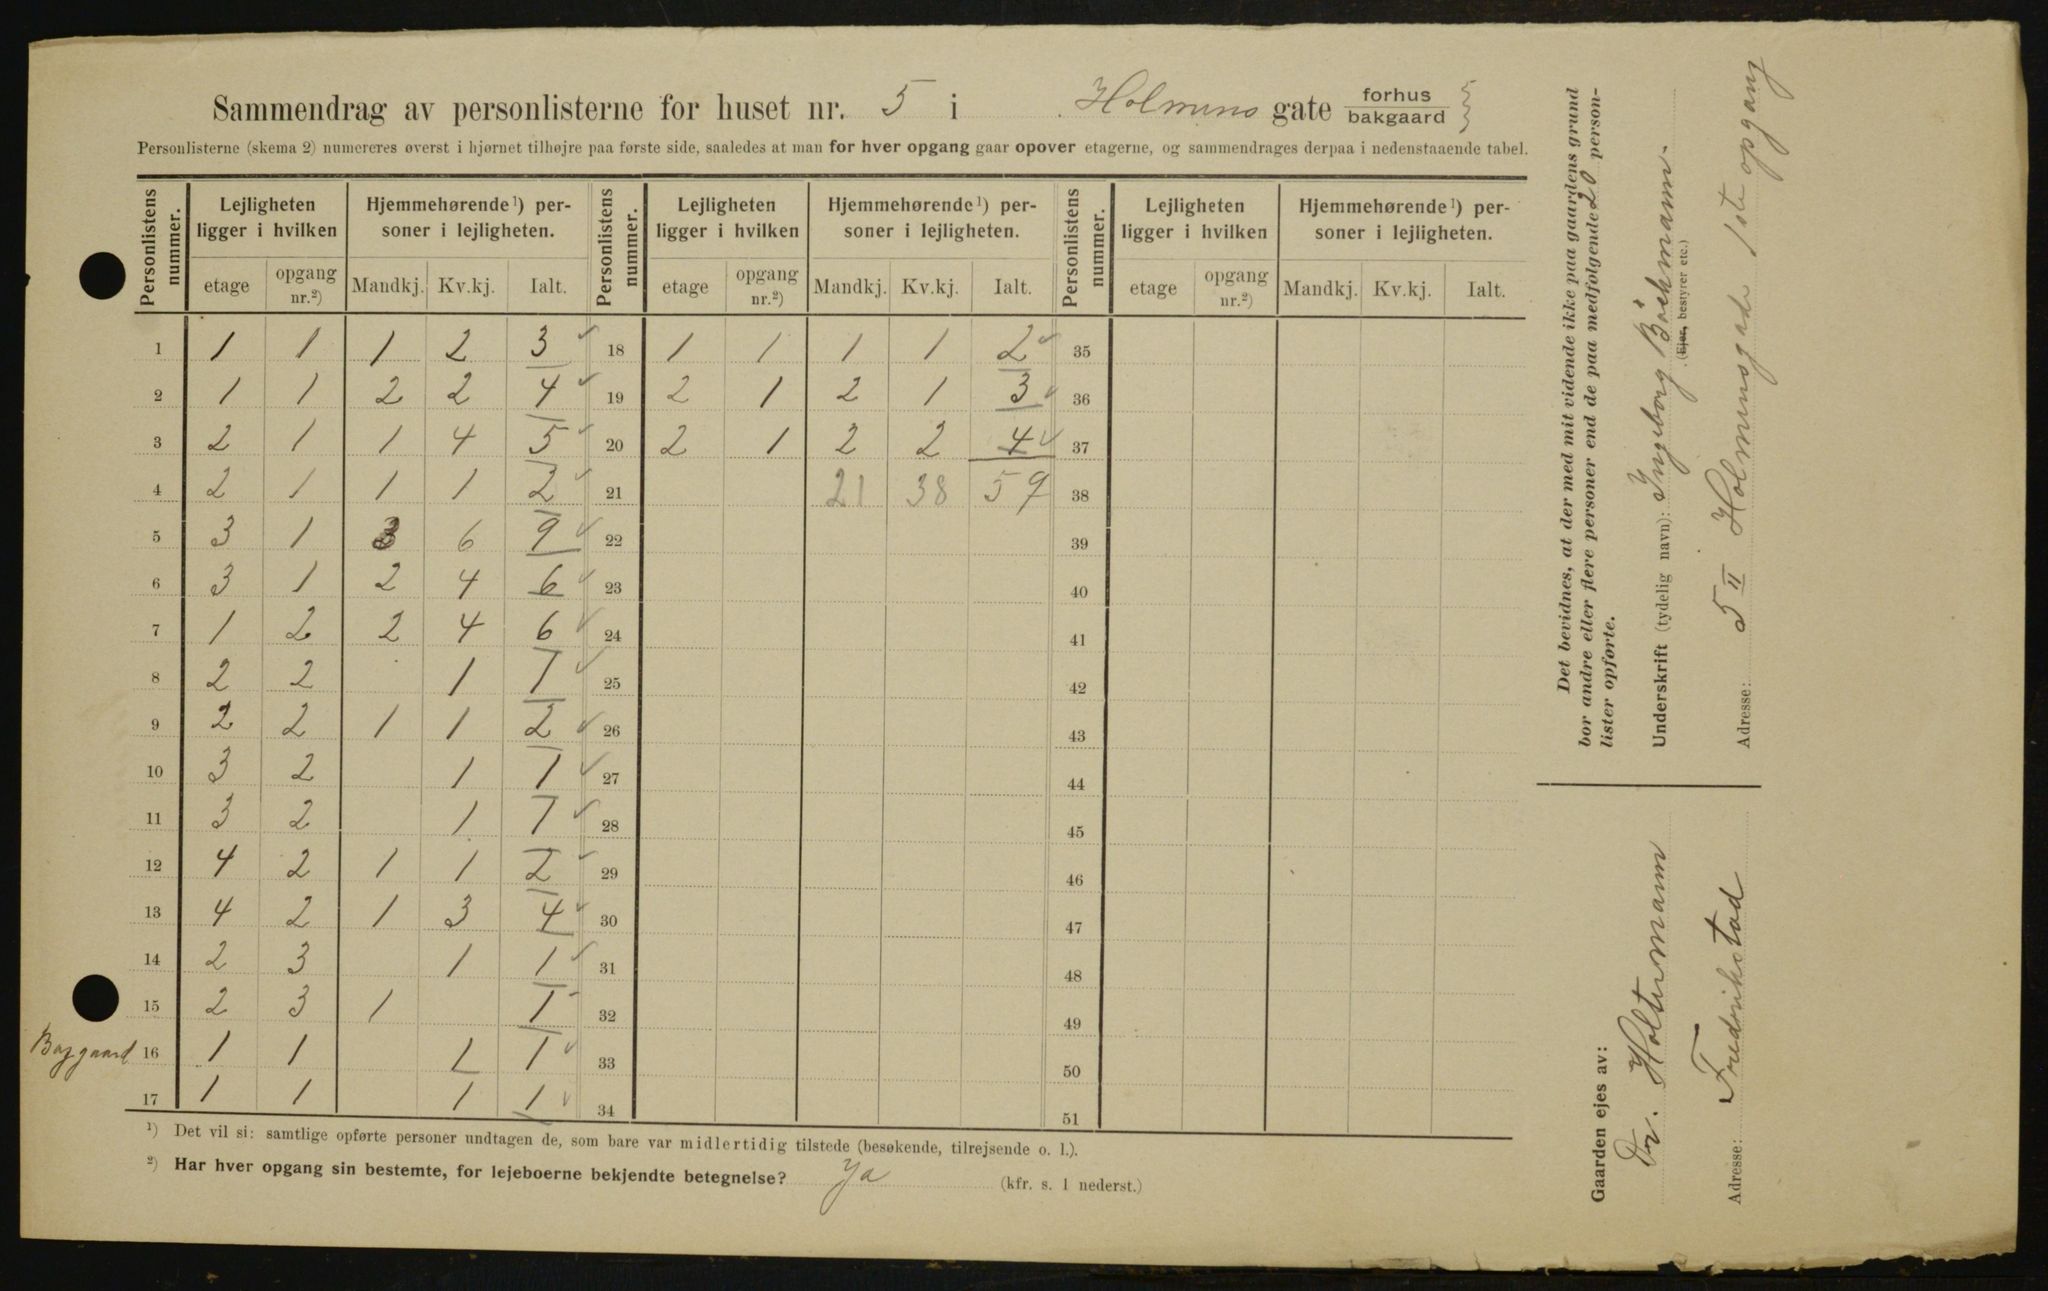 Sammendrag av personlisterne for huset nr. 5 i Holmens gate forhus bakgaard
Personlisterne (skema 2) numereres øverst i hjørnet tilhøjre paa første side, saaledes at man for hver opgang gaar opover etagerne, og sammendrages derpaa i nedenstaaende tabel.
Personlistens nummer. Lejligheten ligger i hvilken Hjemmehørende ¹) personer i lejligheten. Personlistens nummer. Lejligheten ligger i hvilken Hjemmehørende ¹) personer i lejligheten. Personlistens nummer. Lejligheten ligger i hvilken Hjemmehørende ¹) personer i lejligheten.
etage opgang nr.²) Mandkj. Kv.kj. Ialt. etage opgang nr.²) Mandkj. Kv.kj. Ialt. etage opgang nr.²) Mandkj. Kv.kj. Ialt.
1 1 1 1 2 3 18 1 1 1 1 2 35
2 1 1 2 2 4 19 2 1 2 1 3 36
3 2 1 1 4 5 20 2 1 2 2 4 37
4 2 1 1 1 2 21 21 38 59 38
5 3 1 3 6 9 22 39
6 3 1 2 4 6 23 40
7 1 2 2 4 6 24 41
8 2 2 1 1 25 42
9 2 2 1 1 2 26 43
10 3 2 1 1 27 44
11 3 2 1 1 28 45
12 4 2 1 1 2 29 46
13 4 2 1 3 4 30 47
14 2 3 1 1 31 48
15 2 3 1 1 32 49
Baggaard 16 1 1 1 1 33 50
17 1 1 1 1 34 51
¹) Det vil si: samtlige opførte personer undtagen de, som bare var midlertidig tilstede (besøkende, tilrejsende o. l.).
²) Har hver opgang sin bestemte, for lejeboerne bekjendte betegnelse? Ja (kfr. s. 1 nederst.)
Det bevidnes, at der med mit vidende ikke paa gaardens grund
bor andre eller flere personer end de paa medfølgende 20 person-
lister opførte.
Underskrift (tydelig navn): Ingeborg Böckmann.
(Ejer, bestyrer etc.)
Adresse: 5 II Holmensgade 1ste opgang
Gaarden ejes av:
Fr. Holtermann
Adresse: Fredrikstad